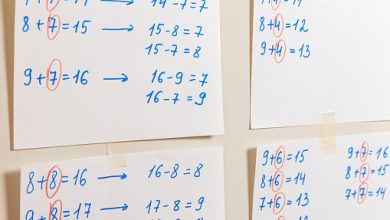 14-7=7
8+7=15 → 15-8=7
15-7=8
9+7=16 → 16-9=7
16-7=9
8+4=12
9+4=13
8+8=16 → 16-8=8
9+8=17 → 17-8=9
9+6=15
8+6=14
7+6=13
9+7=16
8+7=15
7+7=14